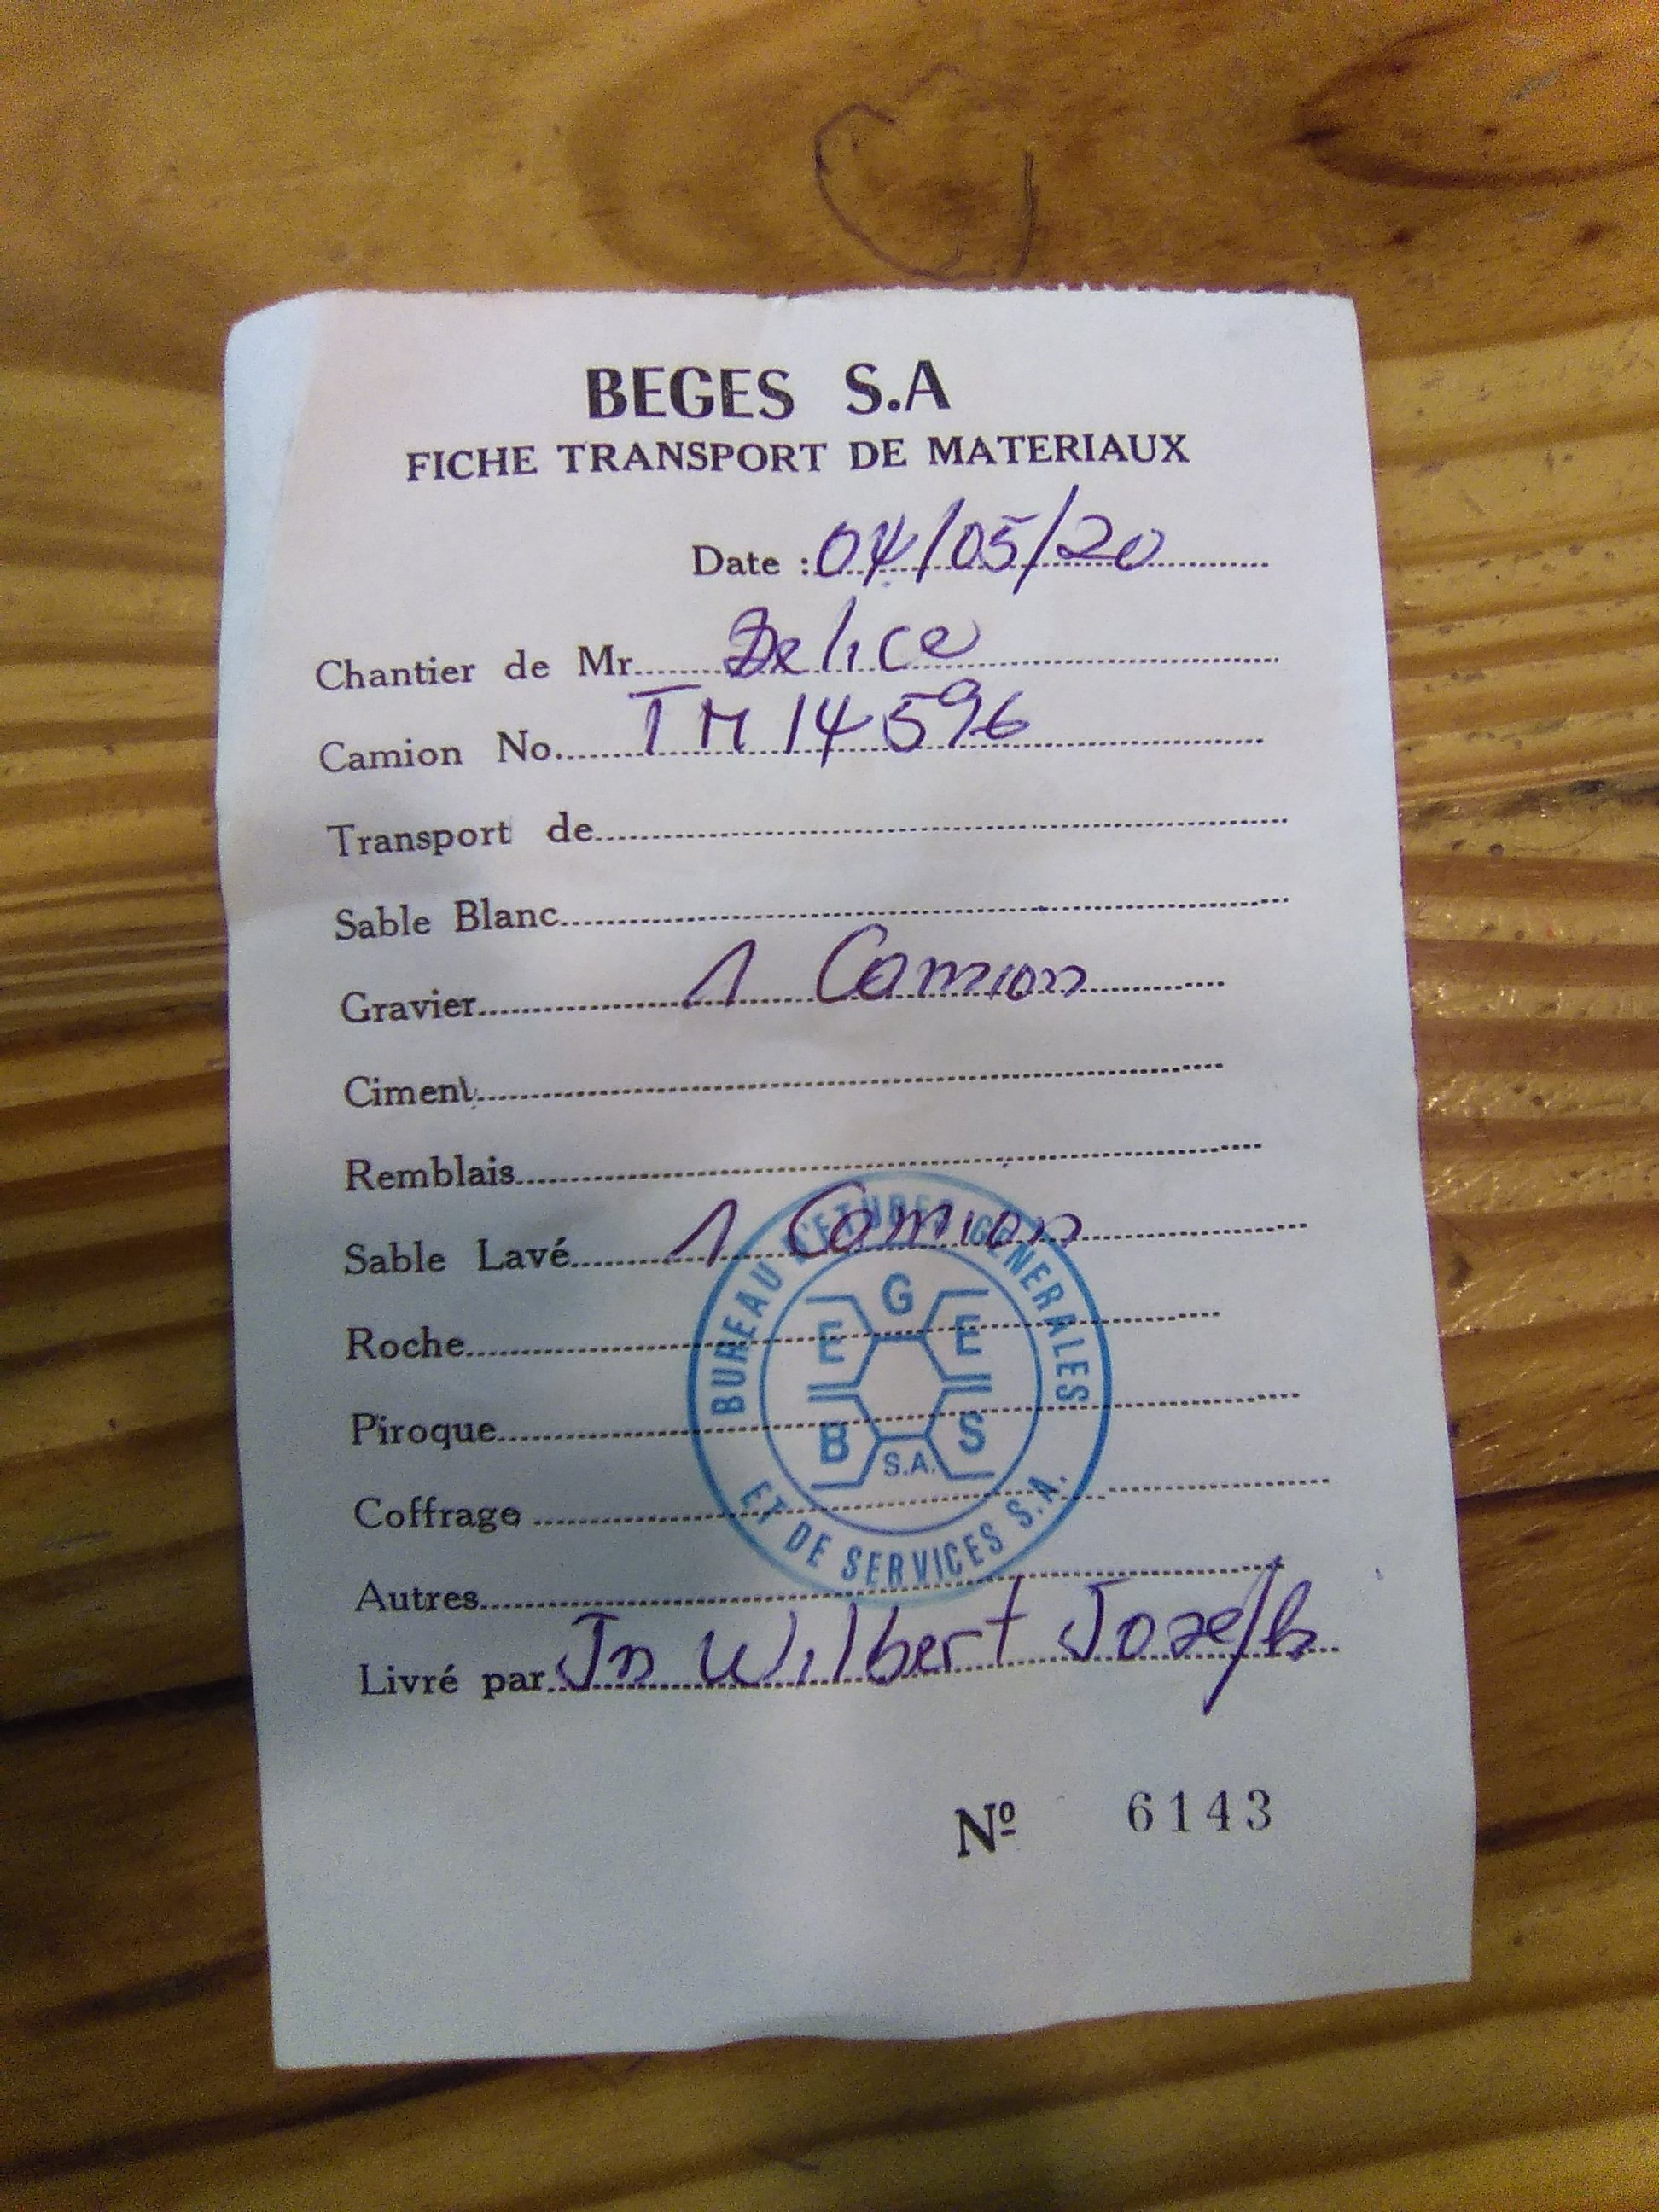 BEGES S.A
FICHE TRANSPORT DE MATERIAUX
Date : 04/05/20
Chantier de Mr. Delice
Camion No. TM 14596
Transport de
Sable Blanc
Gravier 1 Camion
Ciment
Remblais
Sable Lavé 1 Camion
Roche
Piroque
Coffrage
Autres
Livré par Jn Wilbert Joseph
Nº 6143
BUREAU D'ETUDES GENERALES
ET DE SERVICES S.A.
BEGES
S.A.